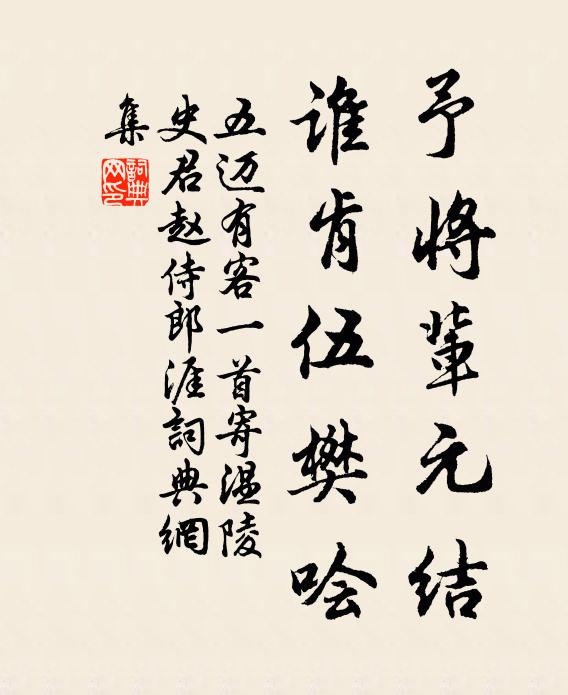 予将辈元结
谁肯伍樊哙
五迈有客一首寄温陵
史君赵侍郎涯詞典網
集
詞典網印